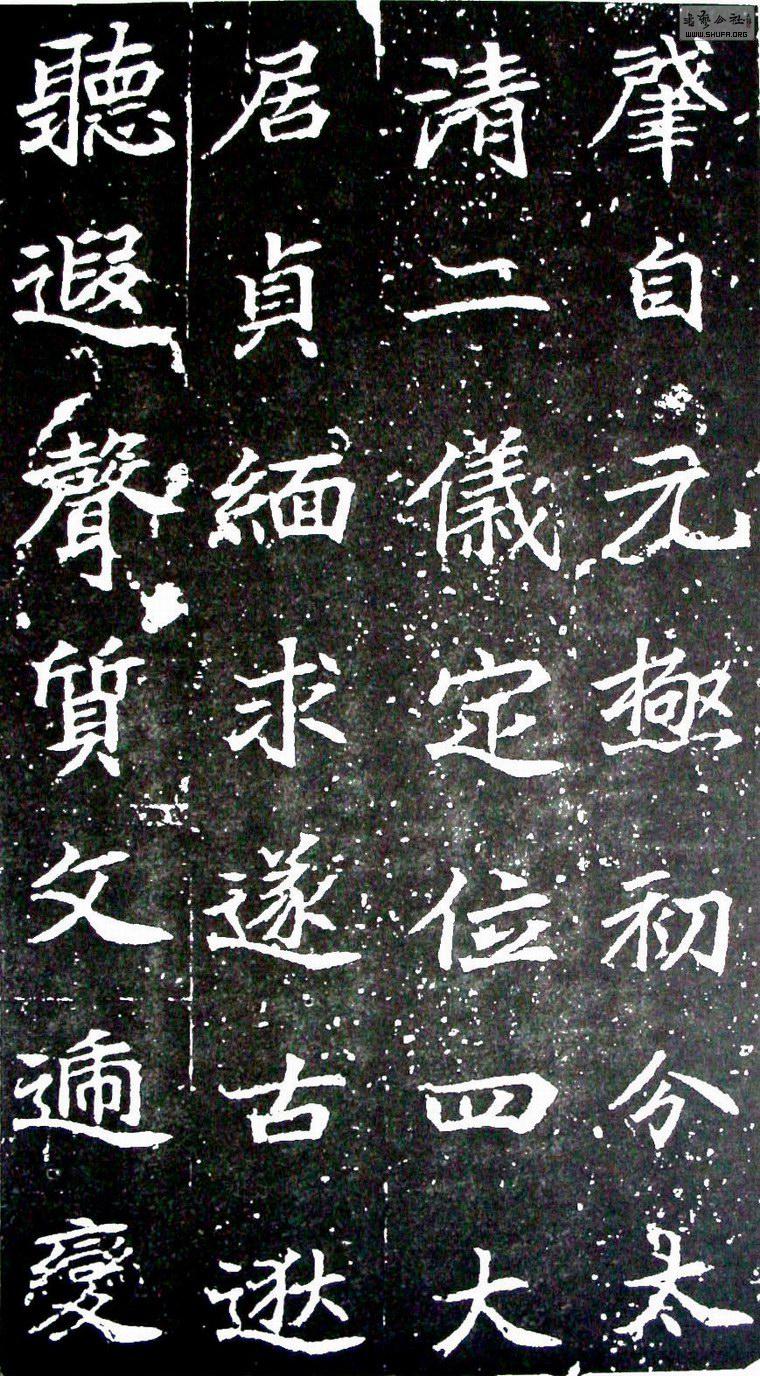 肈自元極初分太
清二儀定位四大
居貞緬求遂古逖
聽遐聲質文遞變
WWW.SHUFA.ORG